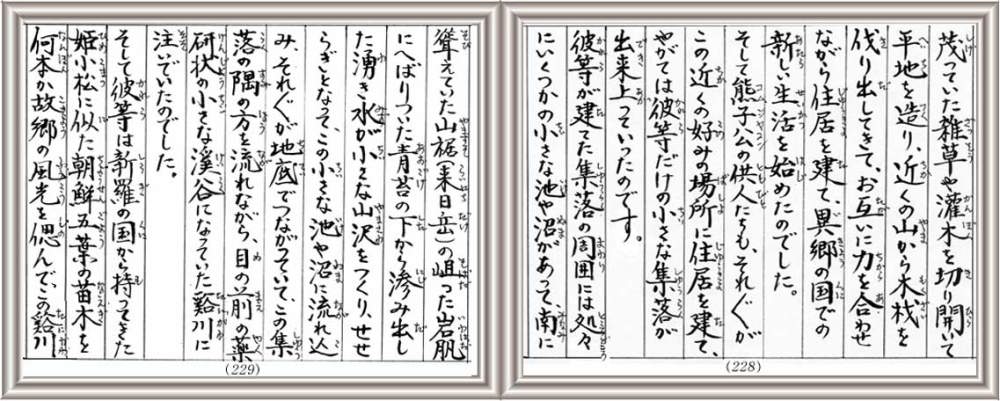 茂っていた雑草や灌木を切り開いて
平地を造り、近くの山から木材を
伐り出してきて、お互いに力を合わせ
ながら住居を建て、異郷の国での
新しい生活を始めたのでした。
そして熊子公の供人たちも、それぞれが
この近くの好みの場所に住居を建て、
やがては彼等だけの小さな集落が
出来上っていったのです。
彼等が建てた集落の周囲には処々
にいくつかの小さな池や沼があって、南に
(228)
聳えていた山裾(来日岳)の岨った岩肌
にへばりついた青苔の下から滲み出し
た湧き水が小さな山沢をつくり、せせ
らぎとなって、この小さな池や沼に流れ込
み、それぞれが地底でつながっていて、この集
落の隅の方を流れながら、目の前の薬
研状の小さな渓谷になっていた谿川に
注いでいたのでした。
そして彼等は新羅の国から持ってきた
姫小松に似た朝鮮五葉の苗木を
何本か故郷の風光を偲んで、この谿川
(229)